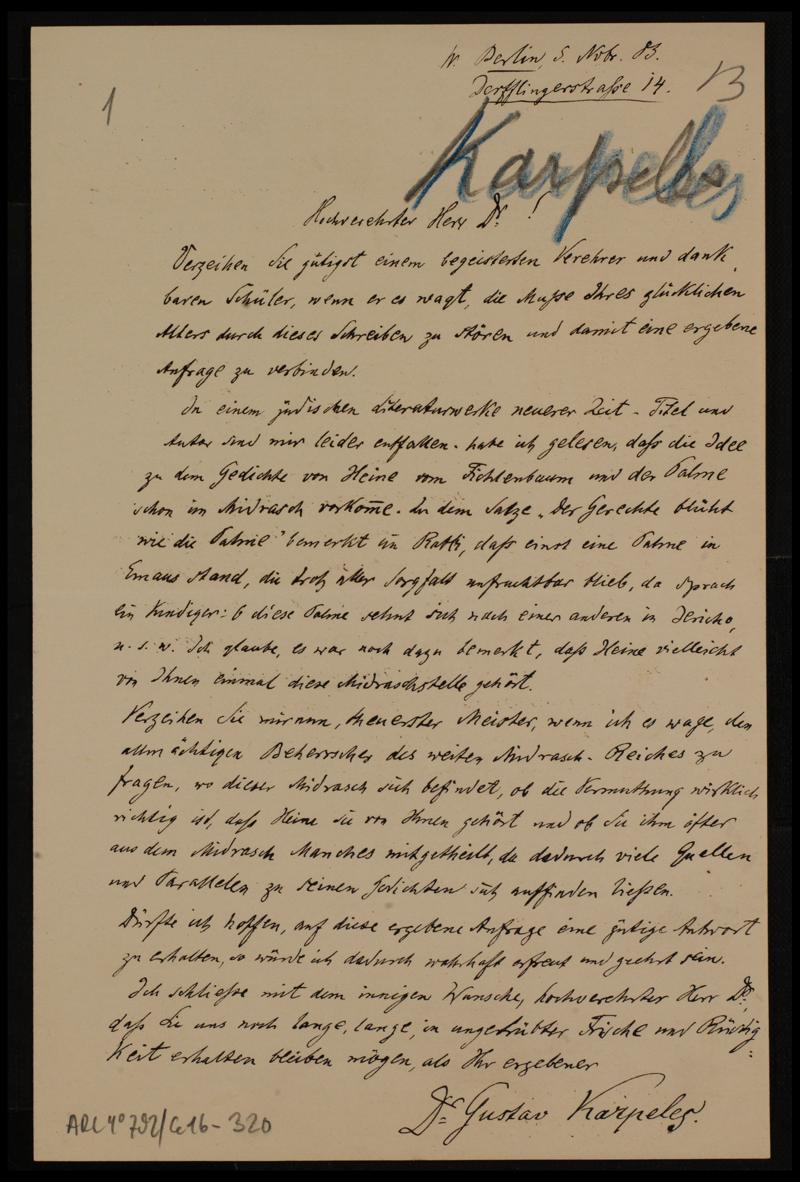 W. Berlin, 5. Nobr. 83.
Derfflingerstraße 14.
13
1
Karpeles
Hochverehrter Herr Dr. !
Verzeihen Sie gütigst einem begeisterten Verehrer und dank
baren Schüler, wenn er es wagt, die Muße Ihres glücklichen
Alters durch dieses Schreiben zu stören und damit eine ergebene
Anfrage zu verbinden.
In einem jüdischen Literaturwerke neuerer Zeit - Titel und
Autor sind mir leider entfallen - habe ich gelesen, daß die Idee
zu dem Gedichte von Heine vom Fichtenbaum und der Palme
schon im Midrasch vorkom̄e. Zu dem Satze „Der Gerechte blüht
wie die Palme" bemerkt ein Rabbi, daß einst eine Palme in
Emaus stand, die trotz aller Sorgfalt unfruchtbar blieb, da sprach
ein Kundiger: O diese Palme sehnt sich nach einer anderen in Jericho,
u. s. w. Ich glaube, es war noch dazu bemerkt, daß Heine vielleicht
von Ihnen einmal diese Midraschstelle gehört.
Verzeihen Sie mir nun, theuerster Meister, wenn ich es wage, den
allmächtigen Beherrscher des weiten Midrasch-Reiches zu
fragen, wo dieser Midrasch sich befindet, ob die Vermuthung wirklich
richtig ist, daß Heine sie von Ihnen gehört und ob Sie ihm öfter
aus dem Midrasch Manches mitgetheilt, da dadurch viele Quellen
und Parallelen zu seinen Gedichten sich auffinden ließen.
Dürfte ich hoffen, auf diese ergebene Anfrage eine gütige Antwort
zu erhalten, so würde ich dadurch wahrhaft erfreut und geehrt sein.
Ich schließe mit dem innigen Wunsche, hochverehrter Herr Dr.,
daß Sie uns noch lange, lange, in ungetrübter Frische und Rüstig
keit erhalten bleiben mögen, als Ihr ergebener
Dr. Gustav Karpeles.
ARC 4° 792/G16 - 320